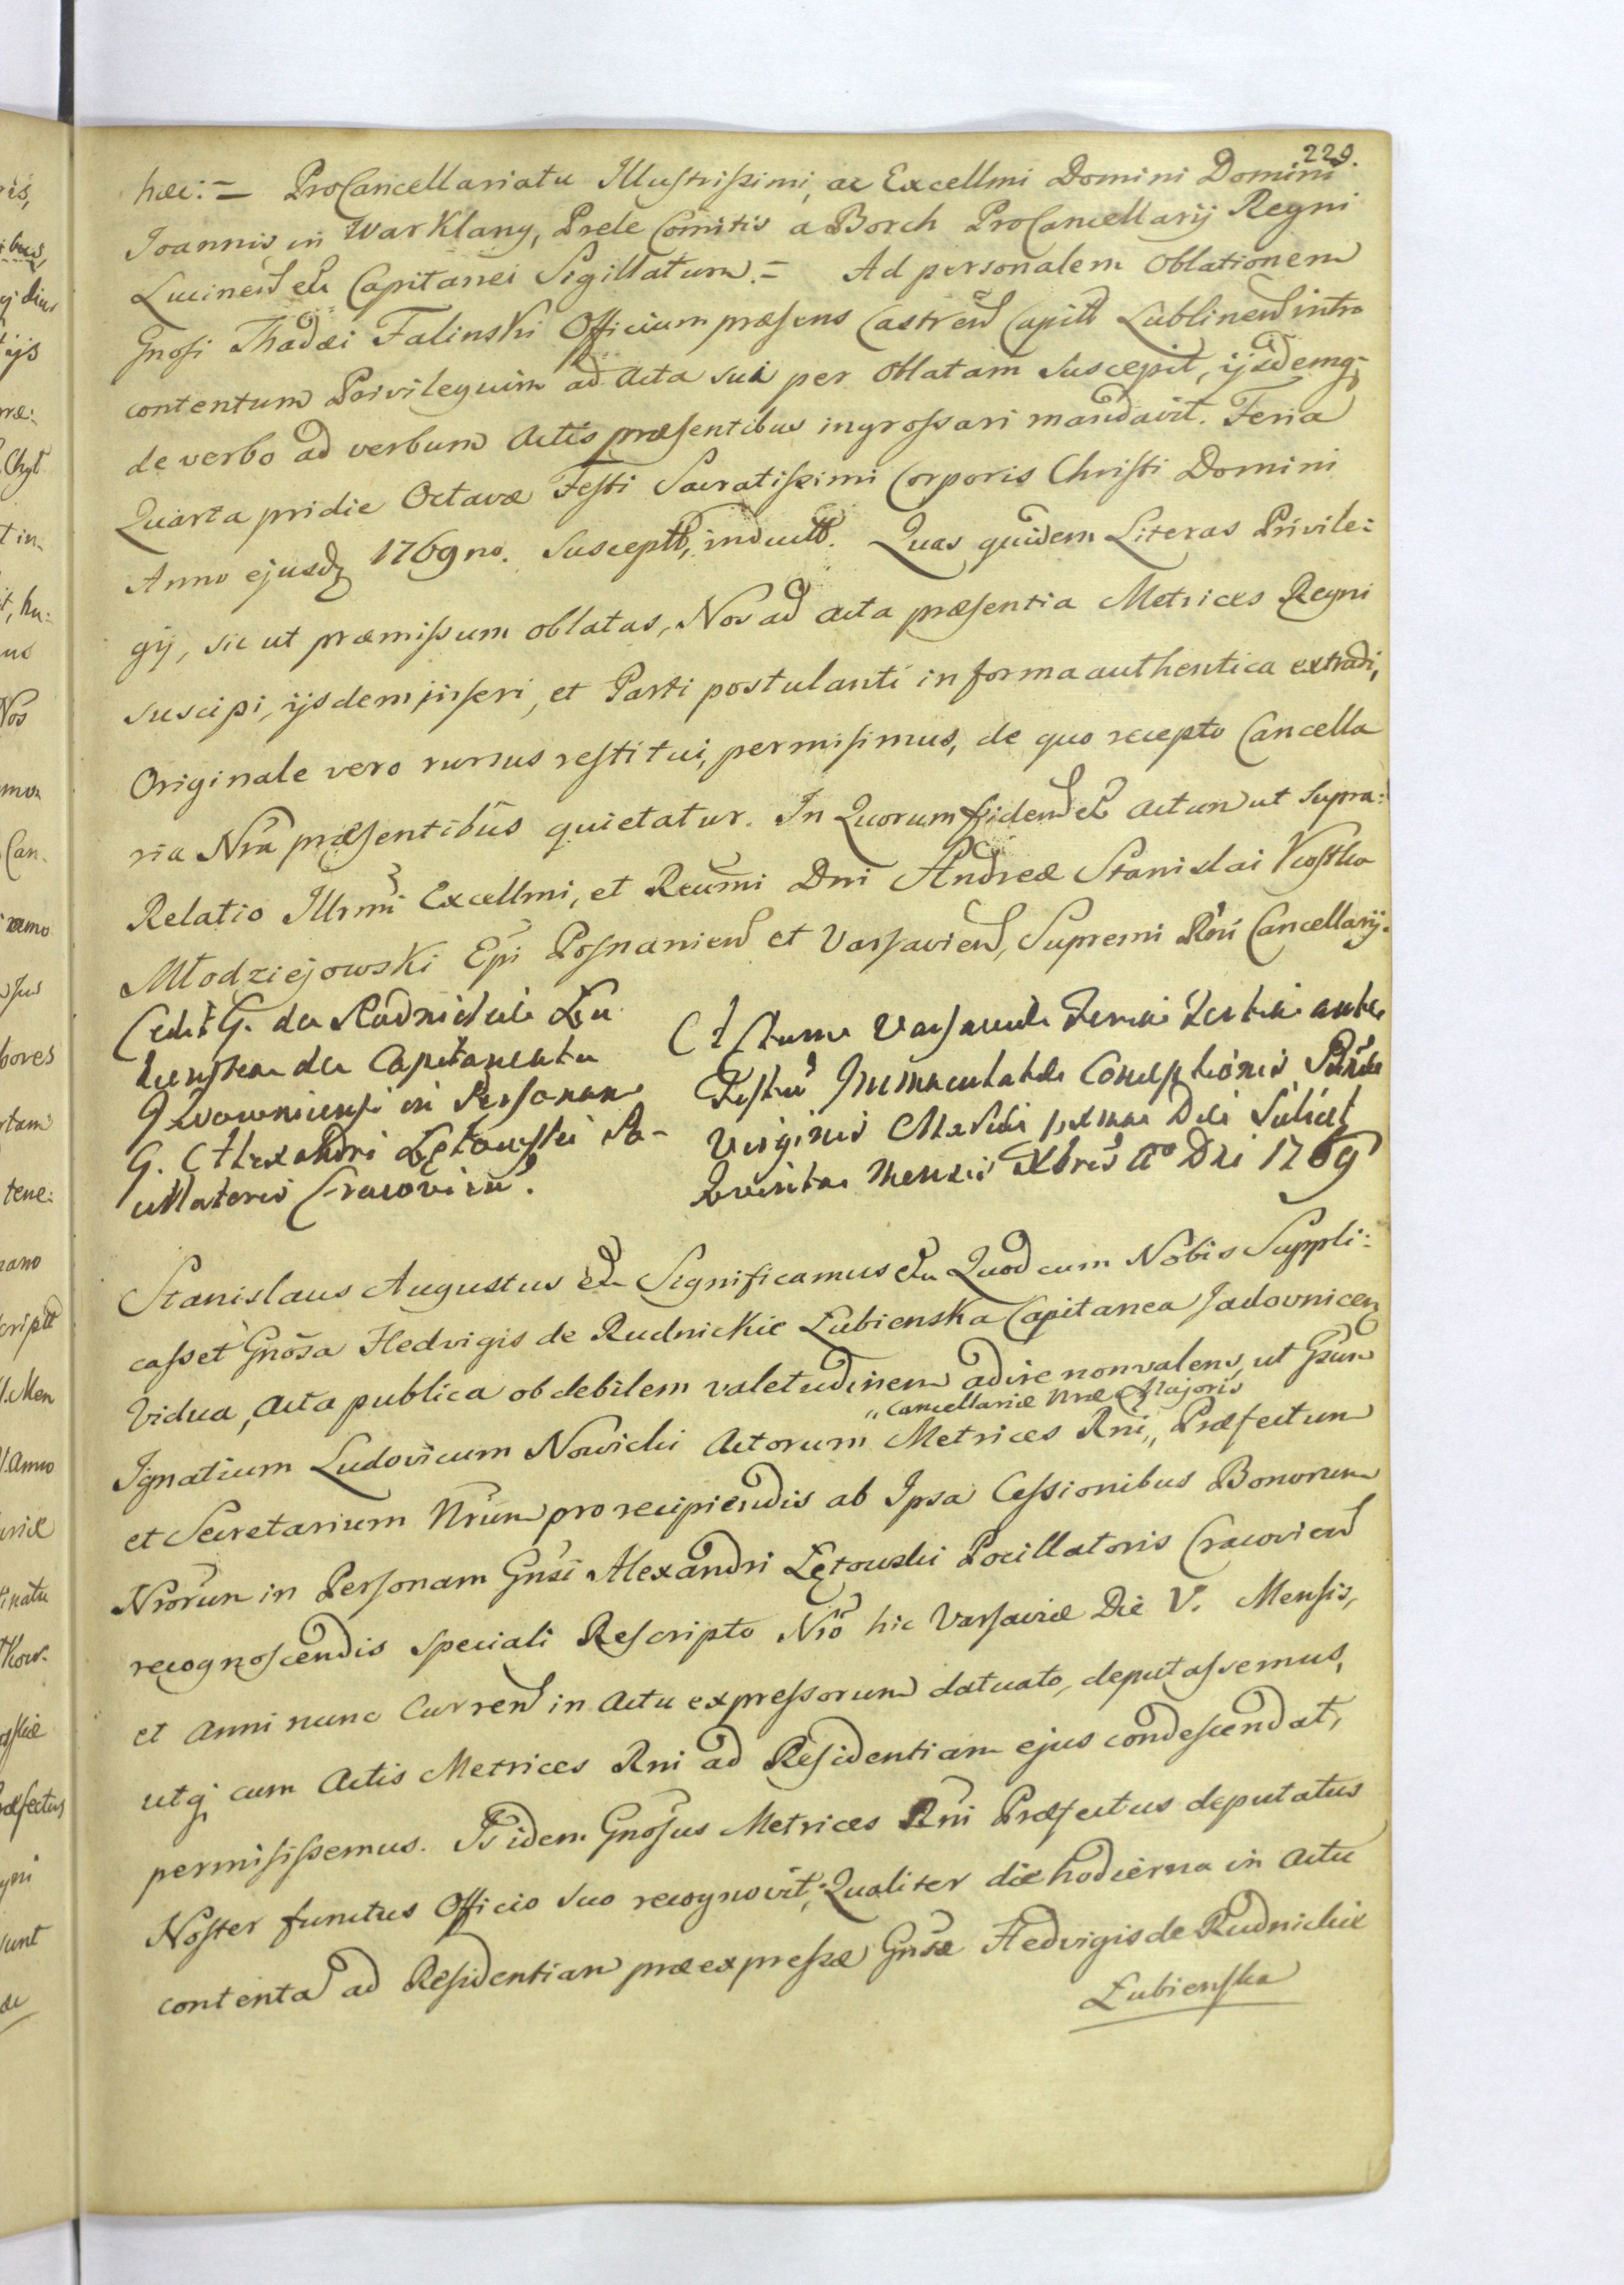 229.
hæc: = ProCancellariatu Illustrissimi, ac Excellmi Domini Domini
Joannis in Warklany, Prele Comitis a Borch ProCancellarij Regni
Lucinen etc Capitanei Sigillatum. = Ad personalem Oblationem
Gnosi Thadæi Falinski Officium præsens Castren Capitt Lublinen intro
contentum Privilegium ad Acta sua per Oblatam suscepit, ijsdemq;
de verbo ad verbum Actis præsentibus ingrossari mandavit. Feria
Quarta pridie Octavæ Festi Sacratissimi Corporis Christi Domini
Anno ejusdq 1769no. Susceptt, inductt. Quas quidem Literas Privile:
gij, sic ut præmissum oblatas, Nos ad Acta præsentia Metrices Regni
suscipi, ijsdem inseri, et Parti postulanti in forma authentica extradi,
Originale vero rursus restitui, permisimus, de quo recepto Cancella
ria Nra præsentibus quietatur. In Quorum fidem etc Actum ut supra:
Relatio Illrmi Excellmi, et Reumi Dni Andreæ Stanislai Kostka
Młodziejowski Epi Posnanien et Varsavien, Supremi Rni Cancellarij.
Cedit G. de Rudnickie Łu
bienska de Capitaneatu
Jadowniensi in Personam
G. Alexandri Łętowski Po-
cillatoris Cracovien.
Actum Varsaviæ Feria Tertia ante
Festum Immaculatæ Conceptionis
Virginis Mariæ Die Scilicet
Quinta Mensis Xbris Ao Dni 1769
Stanislaus Augustus etc Significamus etc Quod cum Nobis Suppli:
casset Gnosa Hedvigis de Rudnickie Łubienska Capitanea Jadovnicen
Vidua, Acta publica ob debilem valetudinem adire non valens, ut Gsum
„Cancellariæ Nræ Majoris
Ignatium Ludovicum Nowicki Actorum Metrices Rni„ Præfectum
et Secretarium Nrum pro recipiendis ab Ipsa Cessionibus Bonorum
Nrorum in Personam Gnsi Alexandri Łętowski Pocillatoris Cracovien
recognoscendis speciali Rescripto Nro hic Varsaviæ Die V. Mensis,
et Anni nunc Curren in Actu expressorum datuato, deputassemus,
utq; cum Actis Metrices Rni ad Residentiam ejus condescendat,
permisissemus. Is idem Gnosus Metrices Rni Præfectus deputatus
Noster functus Officio suo recognovit; Qualiter die hodierna in Actu
contenta ad Residentiam præexpressæ Gnsæ Hedvigis de Rudnickie
Łubienska